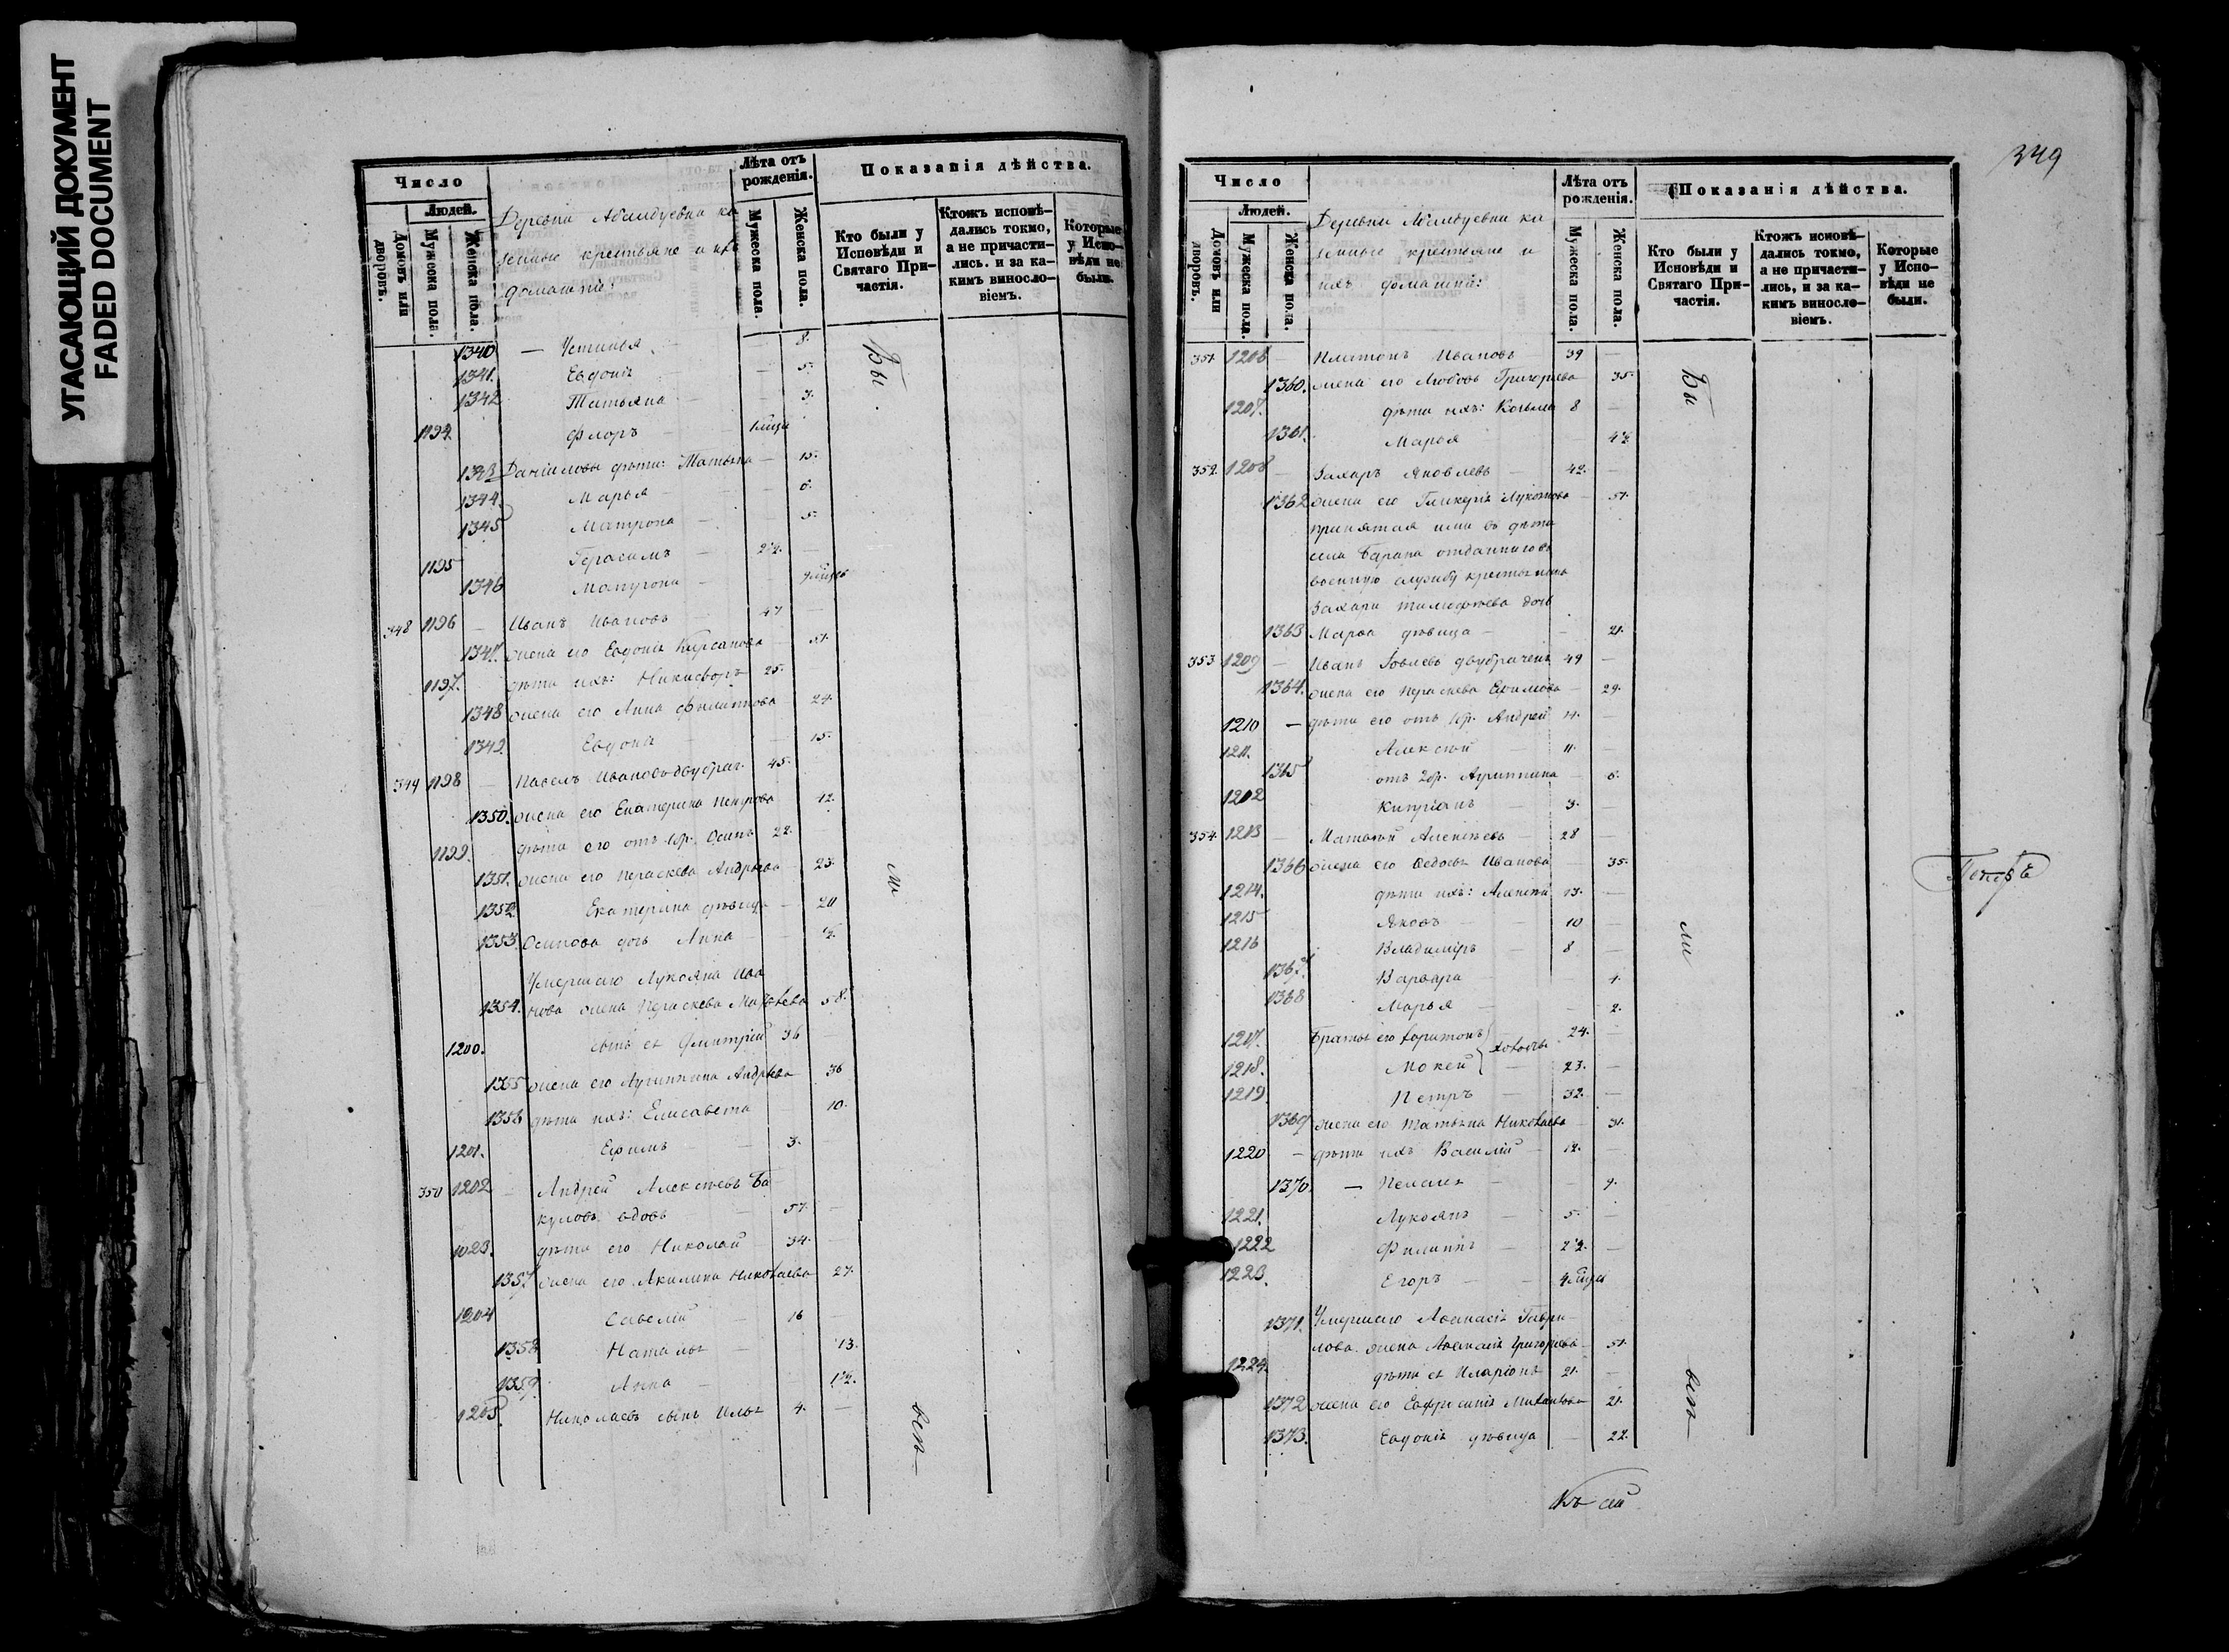 УГАСАЮЩИЙ ДОКУМЕНТ
FADED DOCUMENT
Число
Людей.
Домовъ или дворовъ.
Мужеска пола.
Женска пола.
Деревни ка
зенные крестьяне и ихъ
домашніе:
Лѣта отъ рожденія.
Мужеска пола.
Женска пола.
Показанія дѣйства.
Кто были у Исповѣди и Святаго При-частія.
Ктожъ исповѣ-дались токмо, а не причасти-лись. и за ка-кимъ винословіемъ.
Которые у Испо-вѣди не были.
1340 — Устинья — 8.
1341. Евдокія — 5.
1342 Татьяна — 3.
1194. Флоръ —
1343 Даніиловы дѣти: Татьяна — 15.
1344. Марья — 8.
1345 Матрона — 5.
1195 Герасимъ — —
1346 Матрона —
348 1196 — Иванъ Ивановъ — 47 —
1347. жена его Евдокія Кирсанова — 51.
1197. дѣти ихъ: Никифоръ 25.
1348 жена его Анна Филиппова — 24.
1349. Евдокія — 15.
349 1198 — Павелъ Ивановъ двубрач. 45.
1350. жена его Екатерина Петрова 42.
1199. дѣти его отъ 1 бр. Осипъ 22.
1351. жена его Параскева Андреева 23.
1352. Екатерина дѣвица — 20
1353. Осипова дочь Анна — ½.
Умершаго Лукояна Ива
1354. нова жена Параскева Матвѣева 58.
1200. сынъ ея Дмитрій 36
1355 жена его Агрипина Андреева 36
1356 дѣти ихъ: Елисавета 10.
1201. Ефимъ — 3.
350 1202 — Андрей Алексѣевъ Ба
куловъ вдовъ — 57. —
1023. дѣти его Николай 34. —
1357. жена его Акилина Николаева 27.
1204 Савелій — 16
1358 Наталья — 13.
1359. Анна — 1½.
1205. Николаевъ сынъ Илья 4. —
Бы
ли
всѣ
349
Число
Людей.
Домовъ или дворовъ.
Мужеска пола.
Женска пола.
Деревни ка
зенные крестьяне и
ихъ домашніе:
Лѣта отъ рожденія.
Мужеска пола.
Женска пола.
Показанія дѣйства.
Кто были у Исповѣди и Святаго При-частія.
Ктожъ исповѣ-дались токмо, а не причасти-лись, и за ка-кимъ винословіемъ.
Которые у Испо-вѣди не были.
351. 1206 — Платонъ Ивановъ 39 —
1360. жена его Любовь Григорьева 35.
1207. дѣти ихъ: Козьма 8 —
1361. Марья 4½.
352. 1208 — Захаръ Яковлевъ — 42. —
1362 жена его Гликерія Лукоянова 51.
принятая ими въ дѣти
отданнаго въ
военную службу крестьянина
Захара Тимофѣева дочь
1363 Марѳа дѣвица — — 21.
353 1209 — Иванъ Іовлевъ двубраченъ 49 —
1364. жена его Параскева Ефимова — 29.
1210 — дѣти его отъ 1 бр. Андрей 14. —
1211. Алексѣй — 11. —
1365 отъ 2 бр. Агрипина — 6.
1202 Кипріанъ — 3. —
354. 1213 — Матвѣй Алексѣевъ — 28 —
1366 жена его Ѳедосья Иванова — 35.
1214. дѣти ихъ: Алексѣй 13. —
1215 Яковъ — 10 —
1216 Владиміръ — 8 —
1367. Варвара — 4.
1368 Марья — 2.
1217. Братья его Харитонъ 24. —
1218. Мокей } холосты — 23. —
1219 Петръ — 32. —
1369 жена его Татьяна Николаева 31.
1220 — дѣти ихъ Василій — 12. —
1370. — Пелагея — 9.
1221. Лукоянъ — 5. —
1222 Филиппъ — 2½. —
1223. Егоръ —
1371. Умершаго Аѳанасія Гаври
лова жена Аѳанасія Григорьева 51.
1224. дѣти ея Иларіонъ 21. —
1372 жена его Евфросинія 21.
1373. Евдокія дѣвица — 22.
Бы
ли
всѣ
Къ сей